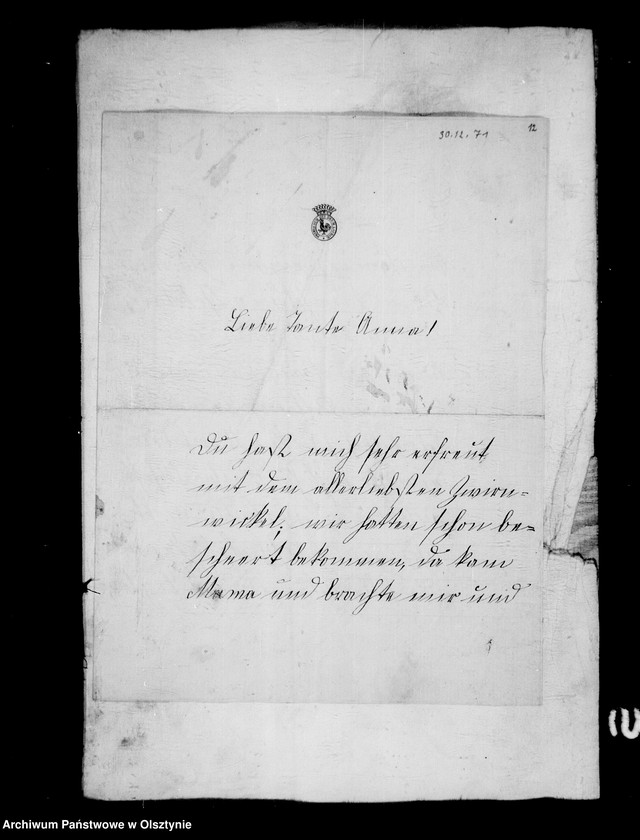 30.12.71
12
Liebe Tante Anna!
Du hast mich sehr erfreut
mit dem allerliebsten Zwirn=
wickel; wir hatten schon be=
scheert bekommen, da kam
Mama und brachte mir und
Archiwum Państwowe w Olsztynie